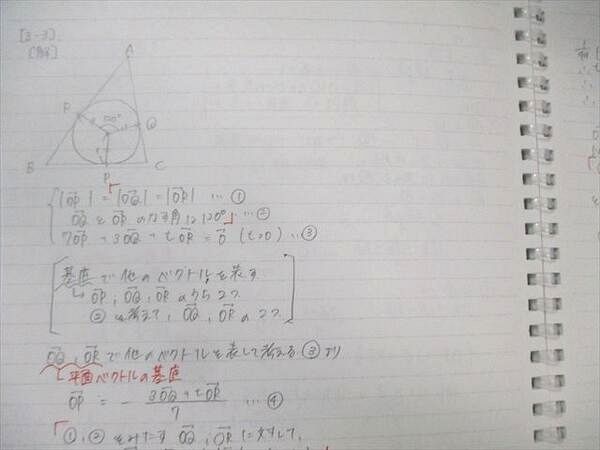 [3-3]
[解]
A
R
120°
Q
B
P
C
|OP| = |OQ| = |OR| … ①
OQ と OR のなす角は 120° … ②
7OP + 3OQ + tOR = 0 (t>0) … ③
基底で他のベクトルを表す
↳ OP, OQ, OR のうち2つ
② を考えて, OQ, OR の2つ
OQ, OR で他のベクトルを表して考える ③ より
平面ベクトルの基底
OP = - 3OQ + tOR / 7 … ④
「①, ② をみたす OQ, OR に対して,